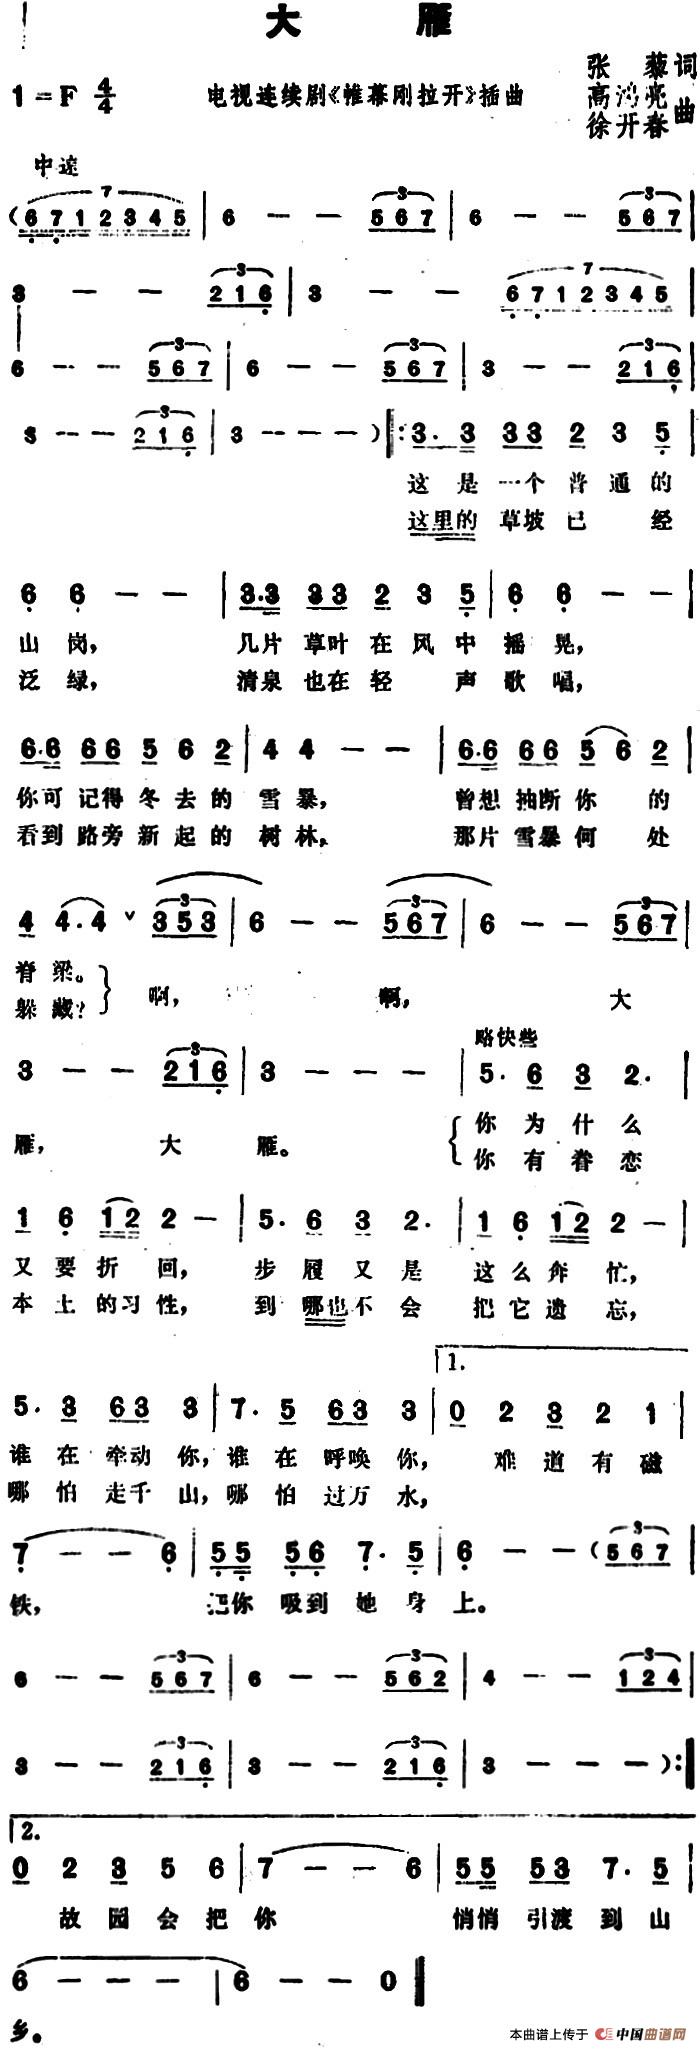 大 雁
张 藜 词
1=F 4/4 电视连续剧《帷幕刚拉开》插曲 高鸿亮 曲
徐开春
中速
(6 7 1 2 3 4 5 | 6 — — 5 6 7 | 6 — — 5 6 7 |
3 — — 2 1 6 | 3 — — 6 7 1 2 3 4 5 |
6 — — 5 6 7 | 6 — — 5 6 7 | 3 — — 2 1 6 |
3 — — 2 1 6 | 3 — — — ) ‖: 3. 3 3 3 2 3 5 |
这 是 一个 普 通 的
这里的 草坡 已 经
6 6 — — | 3.3 3 3 2 3 5 | 6 6 — — |
山 岗， 几片 草叶 在 风 中 摇 晃，
泛 绿， 清泉 也在 轻 声 歌 唱，
6.6 6 6 5 6 2 | 4 4 — — | 6.6 6 6 5 6 2 |
你可 记得 冬 去 的 雪 暴， 曾想 抽断 你 的
看到 路旁 新 起 的 树 林， 那片 雪暴 何 处
4 4.4 ∨ 3 5 3 | 6 — — 5 6 7 | 6 — — 5 6 7 |
脊 梁。
躲 藏？ 啊， 啊， 大
略快些
3 — — 2 1 6 | 3 — — — | 5. 6 3 2. |
雁， 大 雁。 你 为 什 么
你 有 眷 恋
1 6 1 2 2 — | 5. 6 3 2. | 1 6 1 2 2 — |
又 要 折 回， 步 履 又 是 这 么 奔 忙，
本 土 的 习 性， 到 哪也 不 会 把 它 遗 忘，
1.
5. 3 6 3 3 | 7. 5 6 3 3 | 0 2 3 2 1 |
谁 在 牵动 你， 谁 在 呼唤 你， 难 道 有 磁
哪 怕 走千 山， 哪 怕 过万 水，
7 — — 6 | 5 5 5 6 7. 5 | 6 — — (5 6 7 |
铁， 把你 吸到 她 身 上。
6 — — 5 6 7 | 6 — — 5 6 2 | 4 — — 1 2 4 |
3 — — 2 1 6 | 3 — — 2 1 6 | 3 — — — ) :‖
2.
0 2 3 5 6 | 7 — — 6 | 5 5 5 3 7. 5 |
故 园 会 把 你 悄悄 引渡 到 山
6 — — — | 6 — — 0 ‖
乡。
本曲谱上传于 中国曲谱网